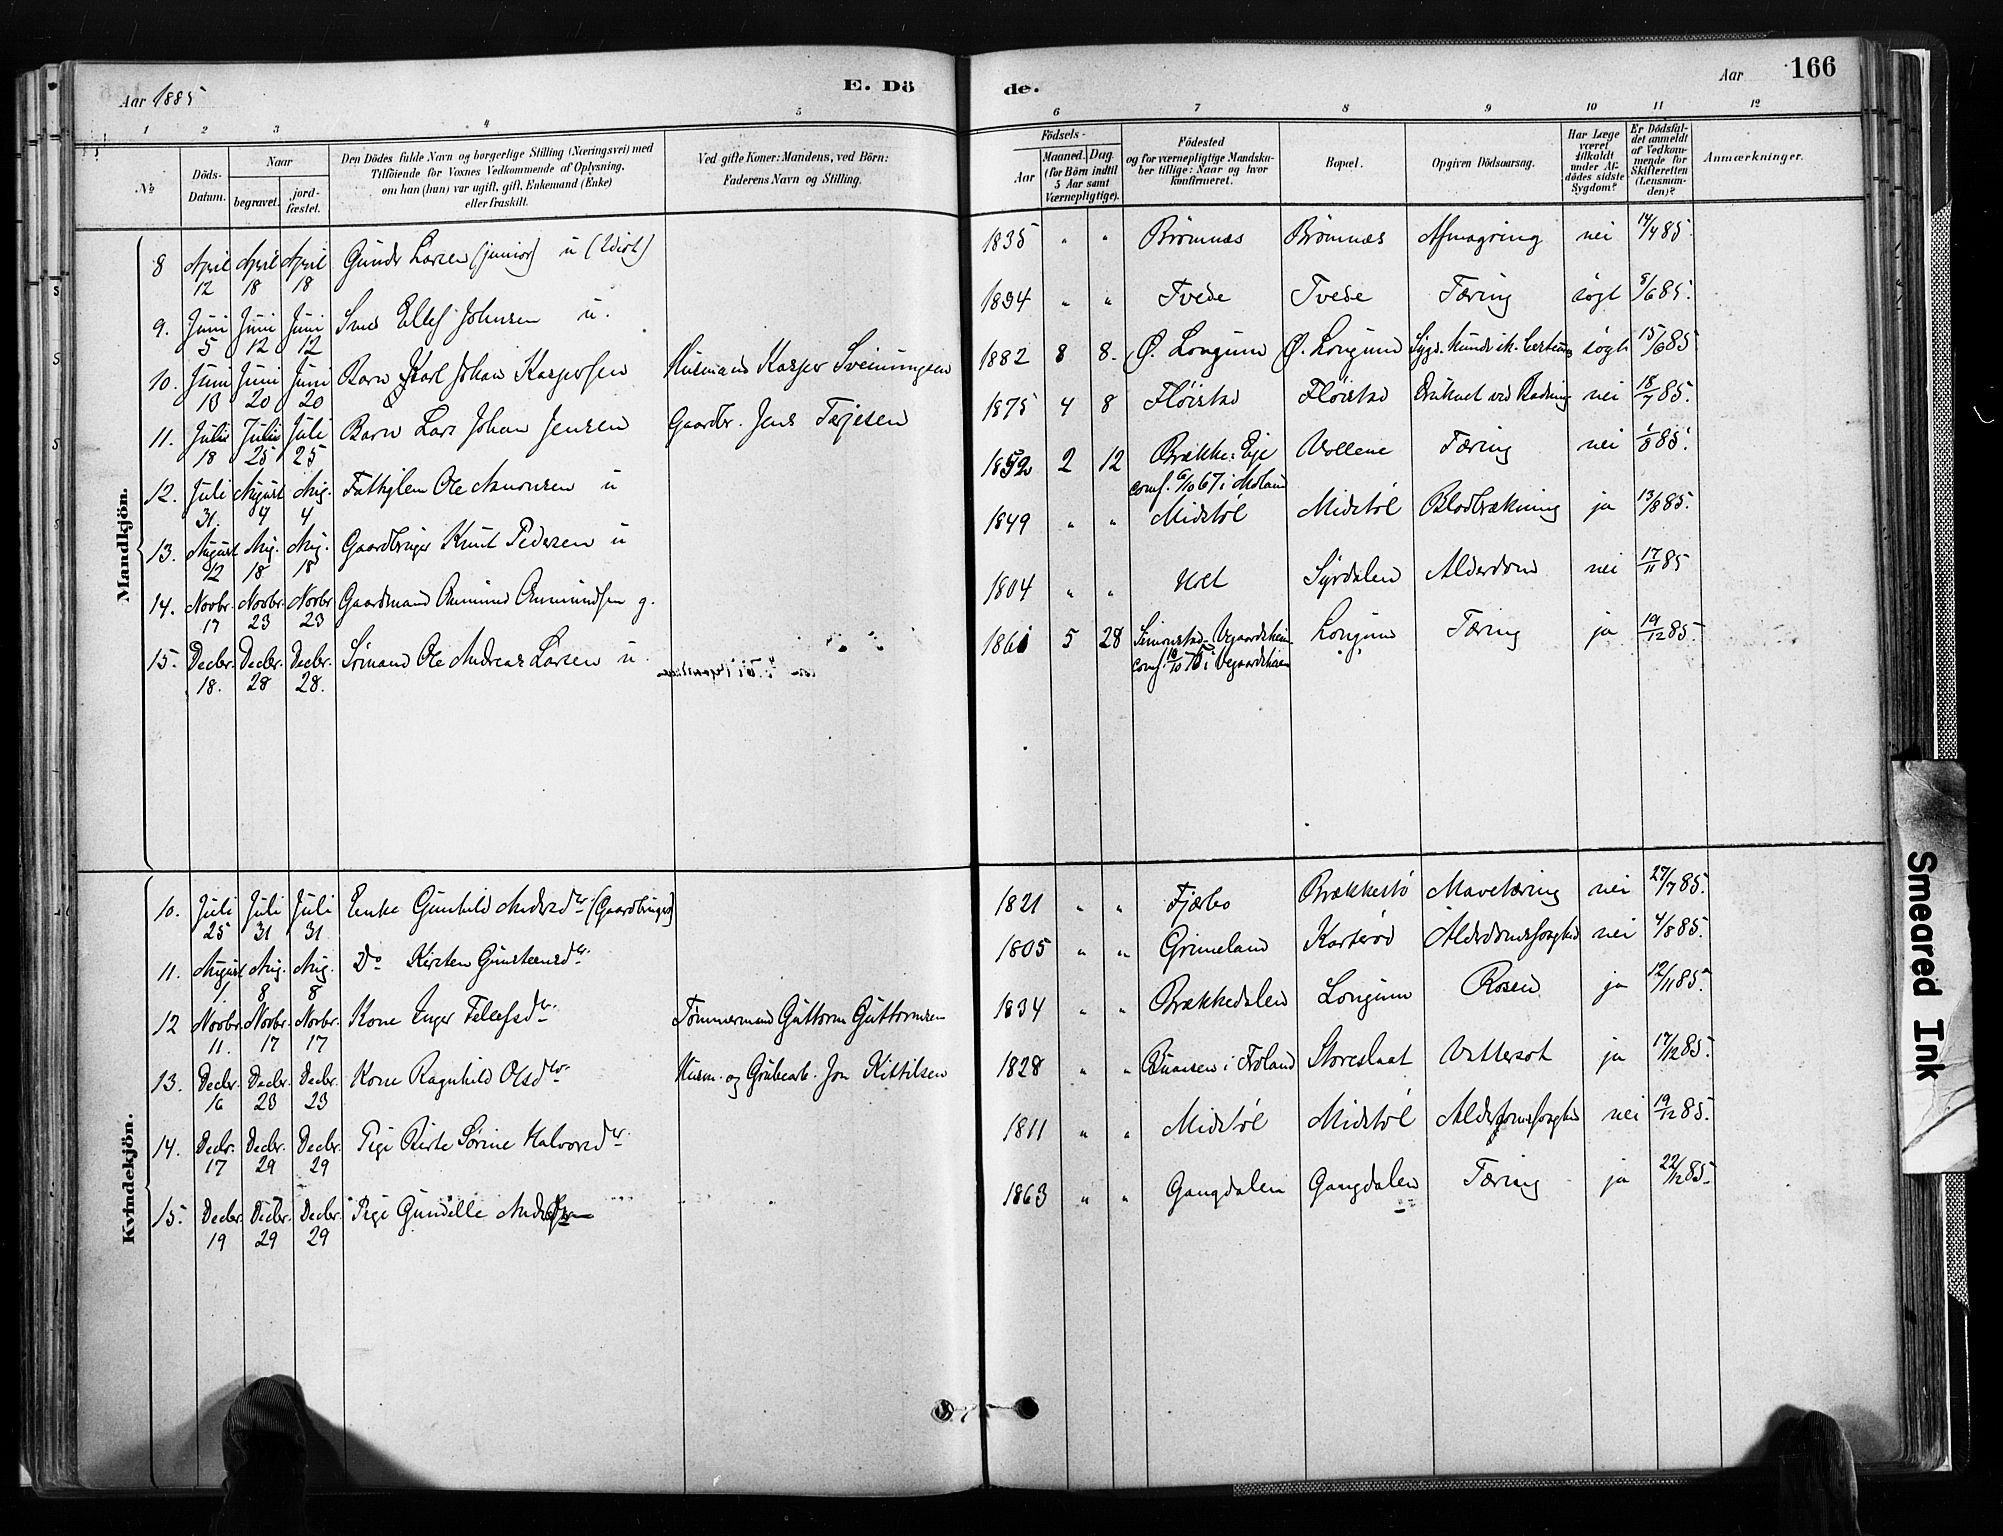 Aar 1885
E. Dö
de.
Aar
166
1 2 3 4 5 6 7 8 9 10 11 12
№
Döds-Datum.
Naar
begravet.
jord-fæstet.
Den Dödes fulde Navn og borgerlige Stilling (Næringsvei) med
Tilföiende for Voxnes Vedkommende af Oplysning,
om han (hun) var ugift, gift, Enkemand (Enke)
eller fraskilt.
Ved gifte Koner: Mandens, ved Börn:
Faderens Navn og Stilling.
Födsels-
Aar
Maaned. Dag.
(for Börn indtil
5 Aar samt
Værnepligtige).
Födested
og for værnepligtige Mandska-
ber tillige: Naar og hvor
konfirmeret.
Bopæl.
Opgiven Dödsaarsag.
Har Læge
været
tilkaldt
under Af-
dödes sidste
Sygdom?
Er Dödsfal-
det anmeldt
af Vedkom-
mende for
Skifteretten
(Lensman-
den)?
Anmærkninger.
Mandkjön.
8 April 12 April 18 April 18 Gunder Larsen (junior) u (Idiot) 1835 " " Brømnæs Brømnæs Afmagring nei 14/4 85.
9. Juni 5 Juni 12 Juni 12 Ellef Johnsen u. 1834 " " Tvede Tvede Tæring søgt 8/6 85.
10. Juni 13 Juni 20 Juni 20 Barn Karl Johan Kaspersen Husmand Kasper Sveinungsen 1882 8 8. Ø. Longum Ø. Longum søgt 15/6 85
11. Juli 18 Juli 25 Juli 25 Barn Lars Johan Jensen Gaardbr. Jens Terjesen 1875 4 8 Fløistad Fløistad Druknet ved Badning nei 18/7 85.
12. Juli 31. August 4 Aug. 4 Fattiglem Ole Aanonsen u 1852 2 12 Brække: Eje Vollene Tæring nei 1/8 85.
conf. 6/10 67 i Moland
13. August 12 Aug. 18 Aug. 18 Gaardbruger Knut Pedersen u 1849 " " Midstøl Midstøl Blodbrækning ja 13/8 85.
14. Novbr. 17 Novbr. 23 Novbr 23 Gaardmand Omund Omundsen g. 1804 " " Uret Syrdalen Alderdom nei 17/11 85
15. Decbr. 18. Decbr. 28 Decbr. 28. Sømand Ole Andreas Larsen u. 1861 5 28 Simonstad Vegaardsheien Longum Tæring ja 19/12 85.
conf. i Vegaardsheien
Kvindekjön.
10. Juli 25 Juli 31 Juli 31 Enke Gunhild Andersdtr (Gaardbruger) 1821 " " Fjærbo Brækkestø Mavetæring nei 27/7 85.
11. August 1. Aug. 8 Aug. 8 Do Kirsten Gunsteinsdtr. 1805 " " Grimeland Karterød Alderdomssvaghed nei 4/8 85.
12 Novbr. 11. Novbr. 17 Novbr. 17 Kone Inger Tellefsdtr. Tømmermand Guttorm Guttormsen 1834 " " Brækkedalen Longum Rosen ja 12/11 85.
13. Decbr. 16 Decbr. 23 Decbr. 23 Kone Ragnhild Olsdtr. Husm. og Grubearb. Jon Kittilsen 1828 " " i Froland Storeslaat Vattersot ja 17/12 85.
14. Decbr. 17 Decbr. 29 Decbr. 29 Pige Birte Sørine Halvorsdtr 1811 " " Midstøl Midstøl Alderdomssvaghed nei 19/12 85.
15. Decbr. 19 Decbr. 29 Decbr. 29 Pige Gunille Andersdtr 1863 " " Gangdalen Gangdalen Tæring ja 22/12 85.
Smeared Ink